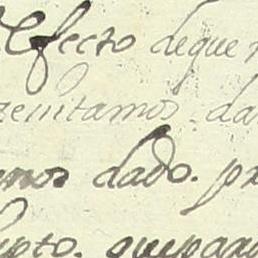 Efecto deque
zenitamos da
mos dado. pr
upto. quepara